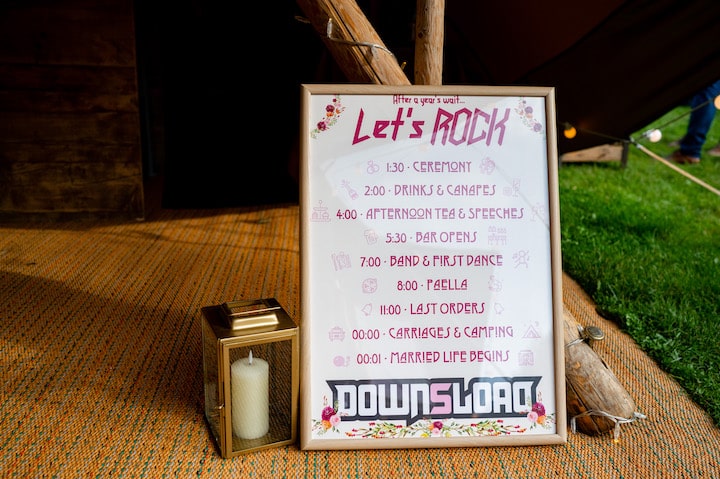 After a year's wait...
Let's ROCK
1:30 · CEREMONY
2:00 · DRINKS & CANAPES
4:00 · AFTERNOON TEA & SPEECHES
5:30 · BAR OPENS
7:00 · BAND & FIRST DANCE
8:00 · PAELLA
11:00 · LAST ORDERS
00:00 · CARRIAGES & CAMPING
00:01 · MARRIED LIFE BEGINS
DOWNSLOAD